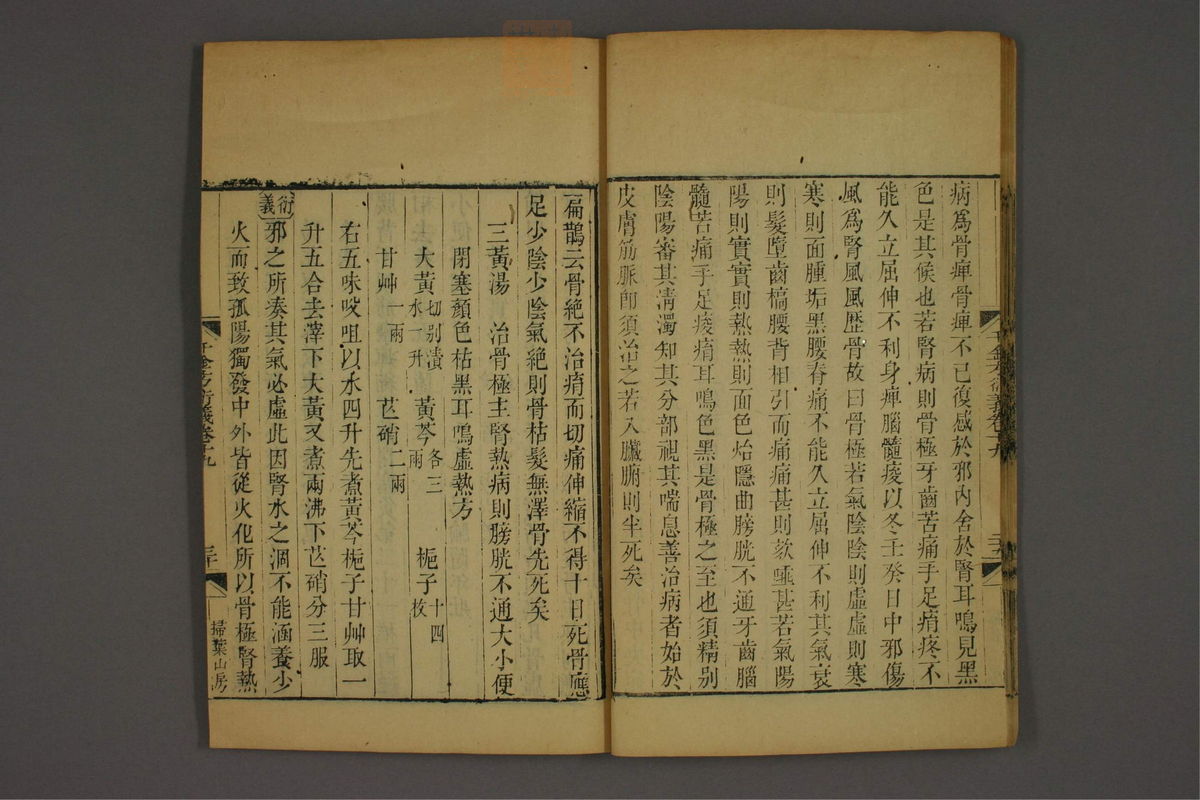 病爲骨痺骨痺不已復感於邪內舍於腎耳鳴見黑
色是其候也若腎病則骨極牙齒苦痛手足痟疼不
能久立屈伸不利身痺腦髓痠以冬壬癸日中邪傷
風爲腎風風歷骨故曰骨極若氣陰陰則虛虛則寒
寒則面腫垢黑腰脊痛不能久立屈伸不利其氣衰
則髮墮齒槁腰背相引而痛痛甚則欬唾甚若氣陽
陽則實實則熱熱則面色炲隱曲膀胱不通牙齒腦
髓苦痛手足痠痟耳鳴色黑是骨極之至也須精別
陰陽審其清濁知其分部視其喘息善治病者始於
皮膚筋脈卽須治之若入臟腑則半死矣
扁鵲云骨絕不治痟而切痛伸縮不得十日死骨應
足少陰少陰氣絕則骨枯髮無澤骨先死矣
三黃湯 治骨極主腎熱病則膀胱不通大小便
閉塞顏色枯黑耳鳴虛熱方
大黃切別漬水一升 黃芩各三兩 梔子十四枚
甘艸一兩 芒硝二兩
右五味㕮咀以水四升先煮黃芩梔子甘艸取一
升五合去滓下大黃又煮兩沸下芒硝分三服
衍義邪之所湊其氣必虛此因腎水之涸不能涵養少
火而致孤陽獨發中外皆從火化所以骨極腎熱
千金方衍義卷十九
三十
掃葉山房